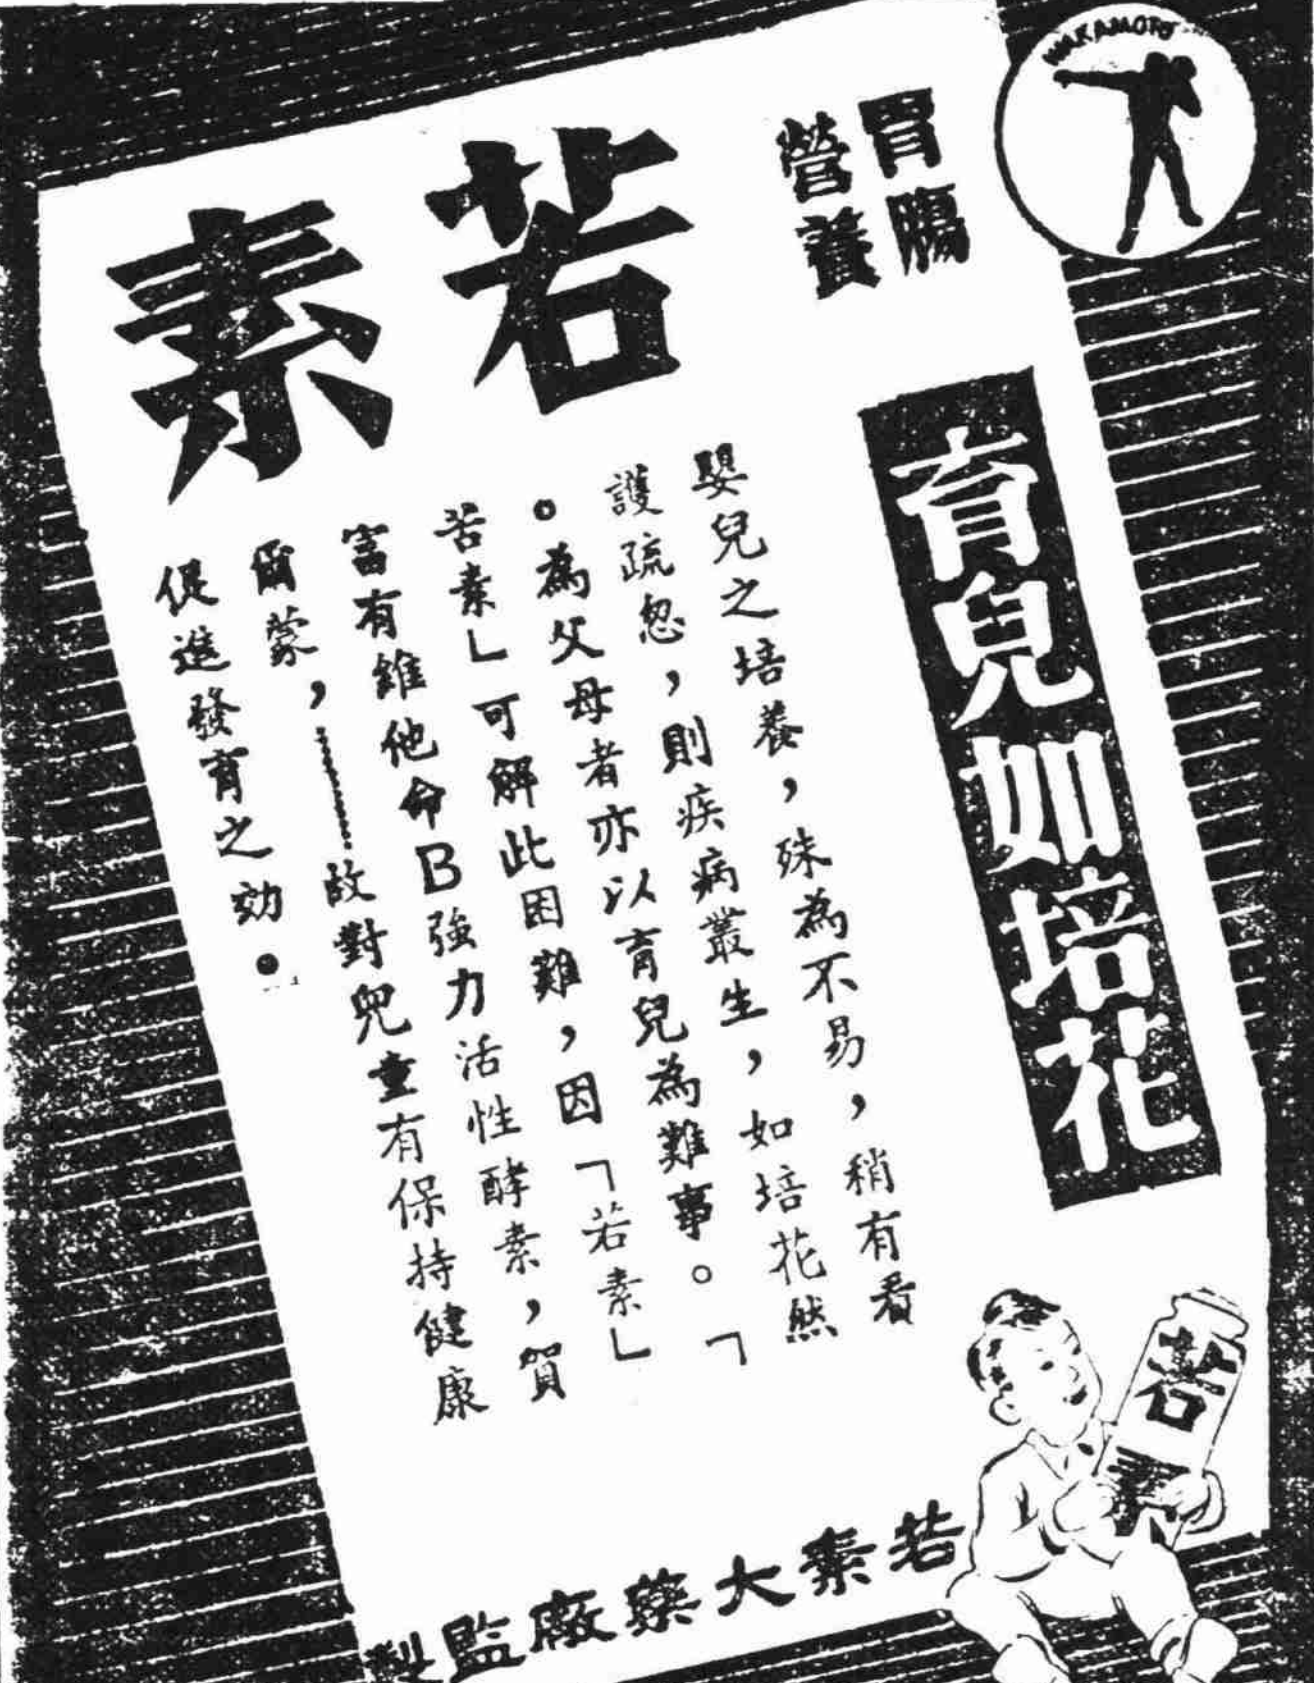 WAKAMOTO
胃腸
營養
若素
育兒如培花
嬰兒之培養，殊為不易，稍有看
護疏忽，則疾病叢生，如培花然
。為父母者亦以育兒為難事。「
若素」可解此困難，因「若素」
富有維他命B強力活性酵素，賀
爾蒙，………故對兒童有保持健康
促進發育之効．
若素
若素大藥廠監製